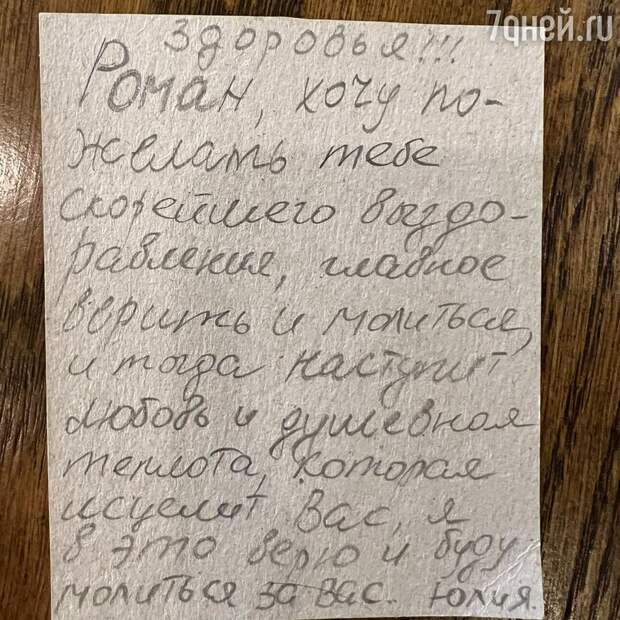 7дней.ru
Здоровья!!!
Роман, хочу по-
желать тебе
скорейшего выздо-
равления, главное
верить и молиться,
и тогда наступит
любовь и душевная
теплота, которая
исцелит Вас, я
в это верю и буду
молиться за вас. Юлия.